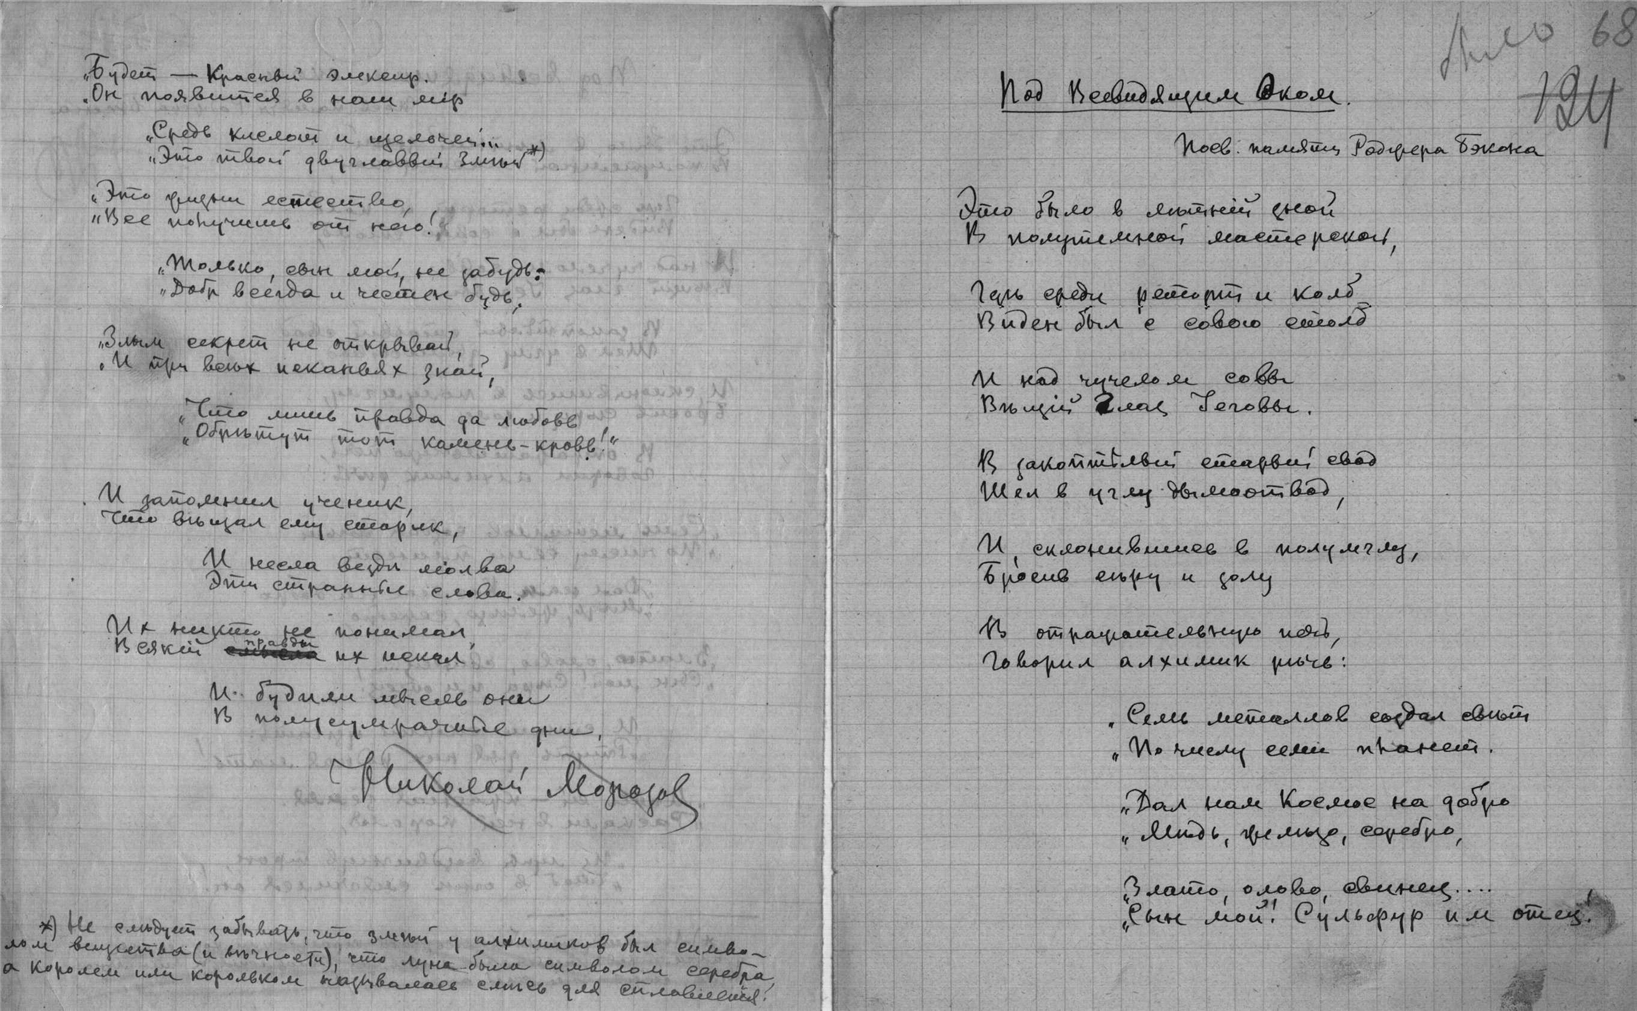 „Будет — Красный элексир.
„Он появится в наш мір
„Средь кислот и щелочей...
„Это твой двуглавый Змѣй *)
„Это жизни естество,
„Все получишь от него!
„Только, сын мой, не забудь:
„Добр всегда и честен будь.
„Злым секрет не открывай,
„И при всѣх исканьях знай,
„Что лишь правда да любовь
„Обрѣтут тот камень-кровь!“
И запомнил ученик,
Что вѣщал ему старик,
И несла вездѣ молва
Эти странные слова.
Их никто не понимал,
Всякій правды их искал,
И будили мысль они
В полусумрачные дни.
Николай Морозов
*) Не слѣдует забывать, что змѣй у алхимиков был симво-
лом вещества (и вѣчности), что луна была символом серебра,
а королем или корольком называлась смѣсь для сплавленія.
68
124
Под Всевидящим Оком.
Посв. памяти Роджера Бэкона
Это было в лѣтній зной
В полутемной мастерской,
Гдѣ среди реторт и колб
Виден был с совою столб
И над чучелом совы
Вѣщій Глаз Іеговы.
В закоптѣлый старый свод
Шел в углу дымоотвод,
И, склонившись в полумглу,
Бросив сѣру и золу
В отражательную печь,
Говорил алхимик рѣчь:
„Семь металлов создал свѣт
„По числу семи планет.
„Дал нам Космос на добро
„Мѣдь, желѣзо, серебро,
„Злато, олово, свинец....
„Сын мой! Сульфур им отец!